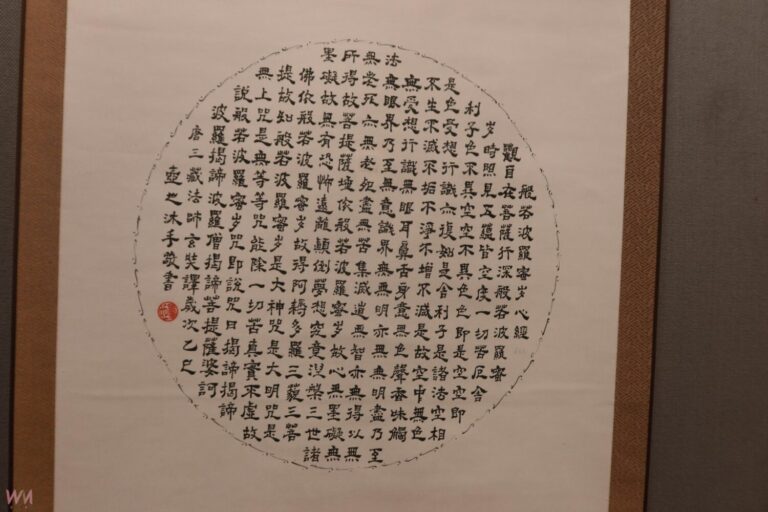 般若波羅蜜多心經
觀自在菩薩行深般若波羅蜜
多時照見五蘊皆空度一切苦厄舍
利子色不異空空不異色色即是空空即
是色受想行識亦復如是舍利子是諸法空相
不生不滅不垢不淨不增不減是故空中無色
無受想行識無眼耳鼻舌身意無色聲香味觸
法無眼界乃至無意識界無無明亦無無明盡乃至
無老死亦無老死盡無苦集滅道無智亦無得以無
所得故菩提薩埵依般若波羅蜜多故心無罣礙無
罣礙故無有恐怖遠離顛倒夢想究竟涅槃三世諸
佛依般若波羅蜜多故得阿耨多羅三藐三菩
提故知般若波羅蜜多是大神咒是大明咒是
無上咒是無等等咒能除一切苦真實不虛故
說般若波羅蜜多咒即說咒曰揭諦揭諦
波羅揭諦波羅僧揭諦菩提薩婆訶
唐三藏法師玄奘譯歲次乙巳
沐手敬書